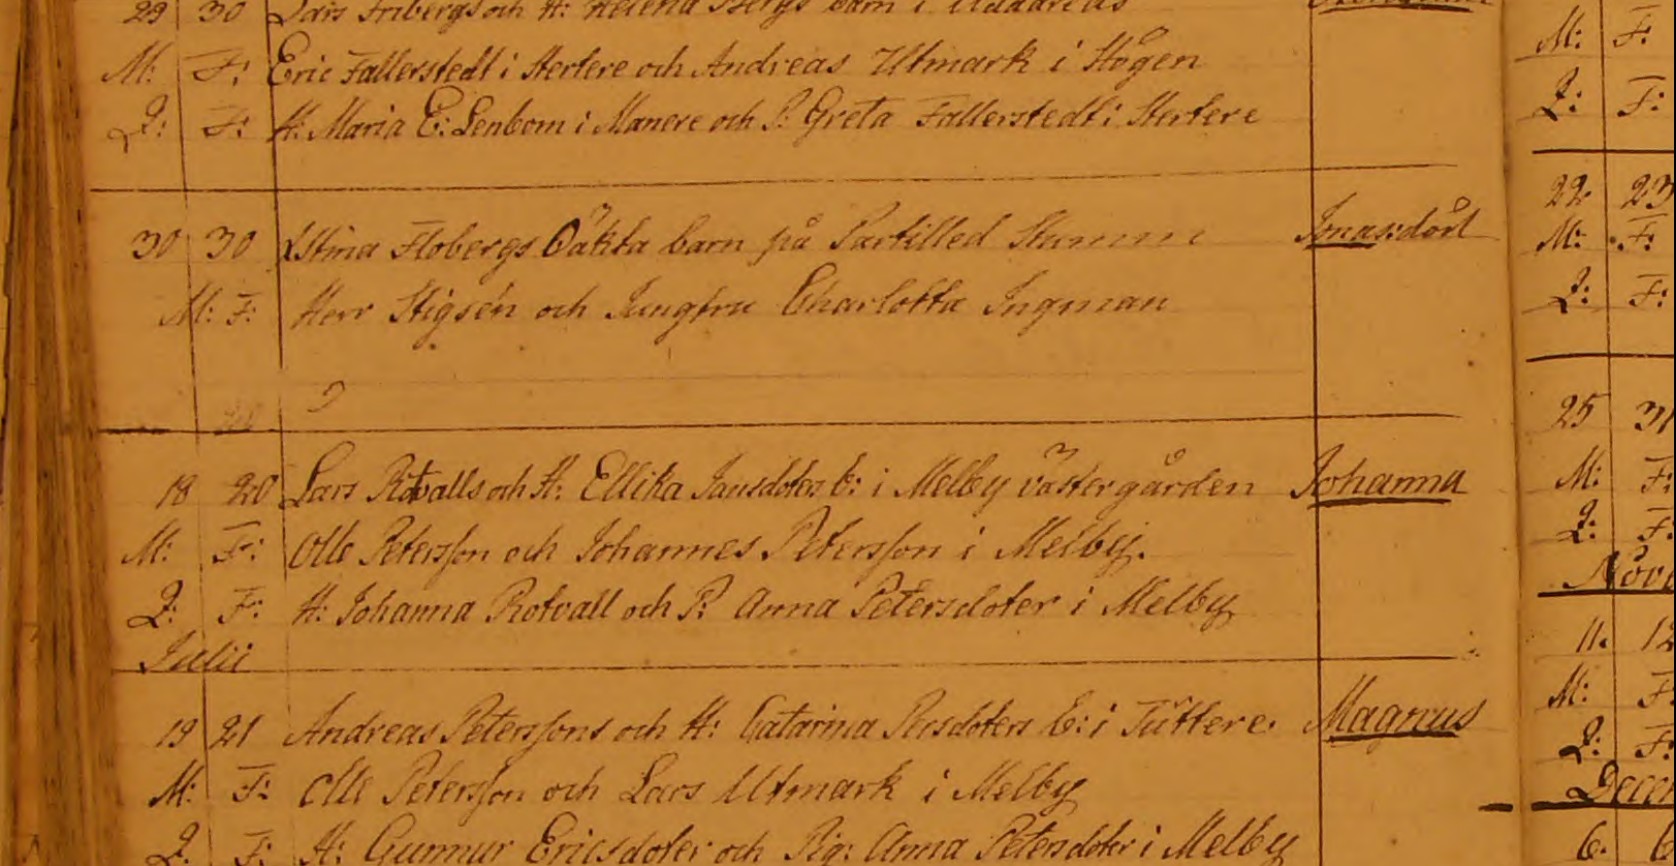 29 30 Lars Fribergs och H: Helena Bergs barn i
M: F: Eric Fallerstedt i Stertere och Andreas Utmark i Högen
Q: F: H: Maria E: Lenbom i Manere och P: Greta Fallerstedt i Stertere
30 30 Stina Flobergs Oäkta barn på Partilled Stumm Jonas: död
M: F: Herr Stigsén och Jungfru Charlotta Ingman
18 20 Lars Rotvalls och H: Ellika Jansdoters b: i Melby Västergården Johanna
M: F: Olle Petersson och Johannes Petersson i Melby.
Q: F: H: Johanna Rotvall och P: Anna Petersdoter i Melby
Julii
19 21 Andreas Peterssons och H: Catarina Persdoters b: i Tuttere. Magnus
M: F: Olle Petersson och Lars Utmark i Melby
Q: F: H: Gunnur Ericsdoter och Pig: Anna Petersdoter i Melby
M: F:
Q: F:
22 23
M: F:
Q: F:
25 31
M: F:
Q: F:
Nov
11. 12
M: F
Q: F:
Decem
6. 6